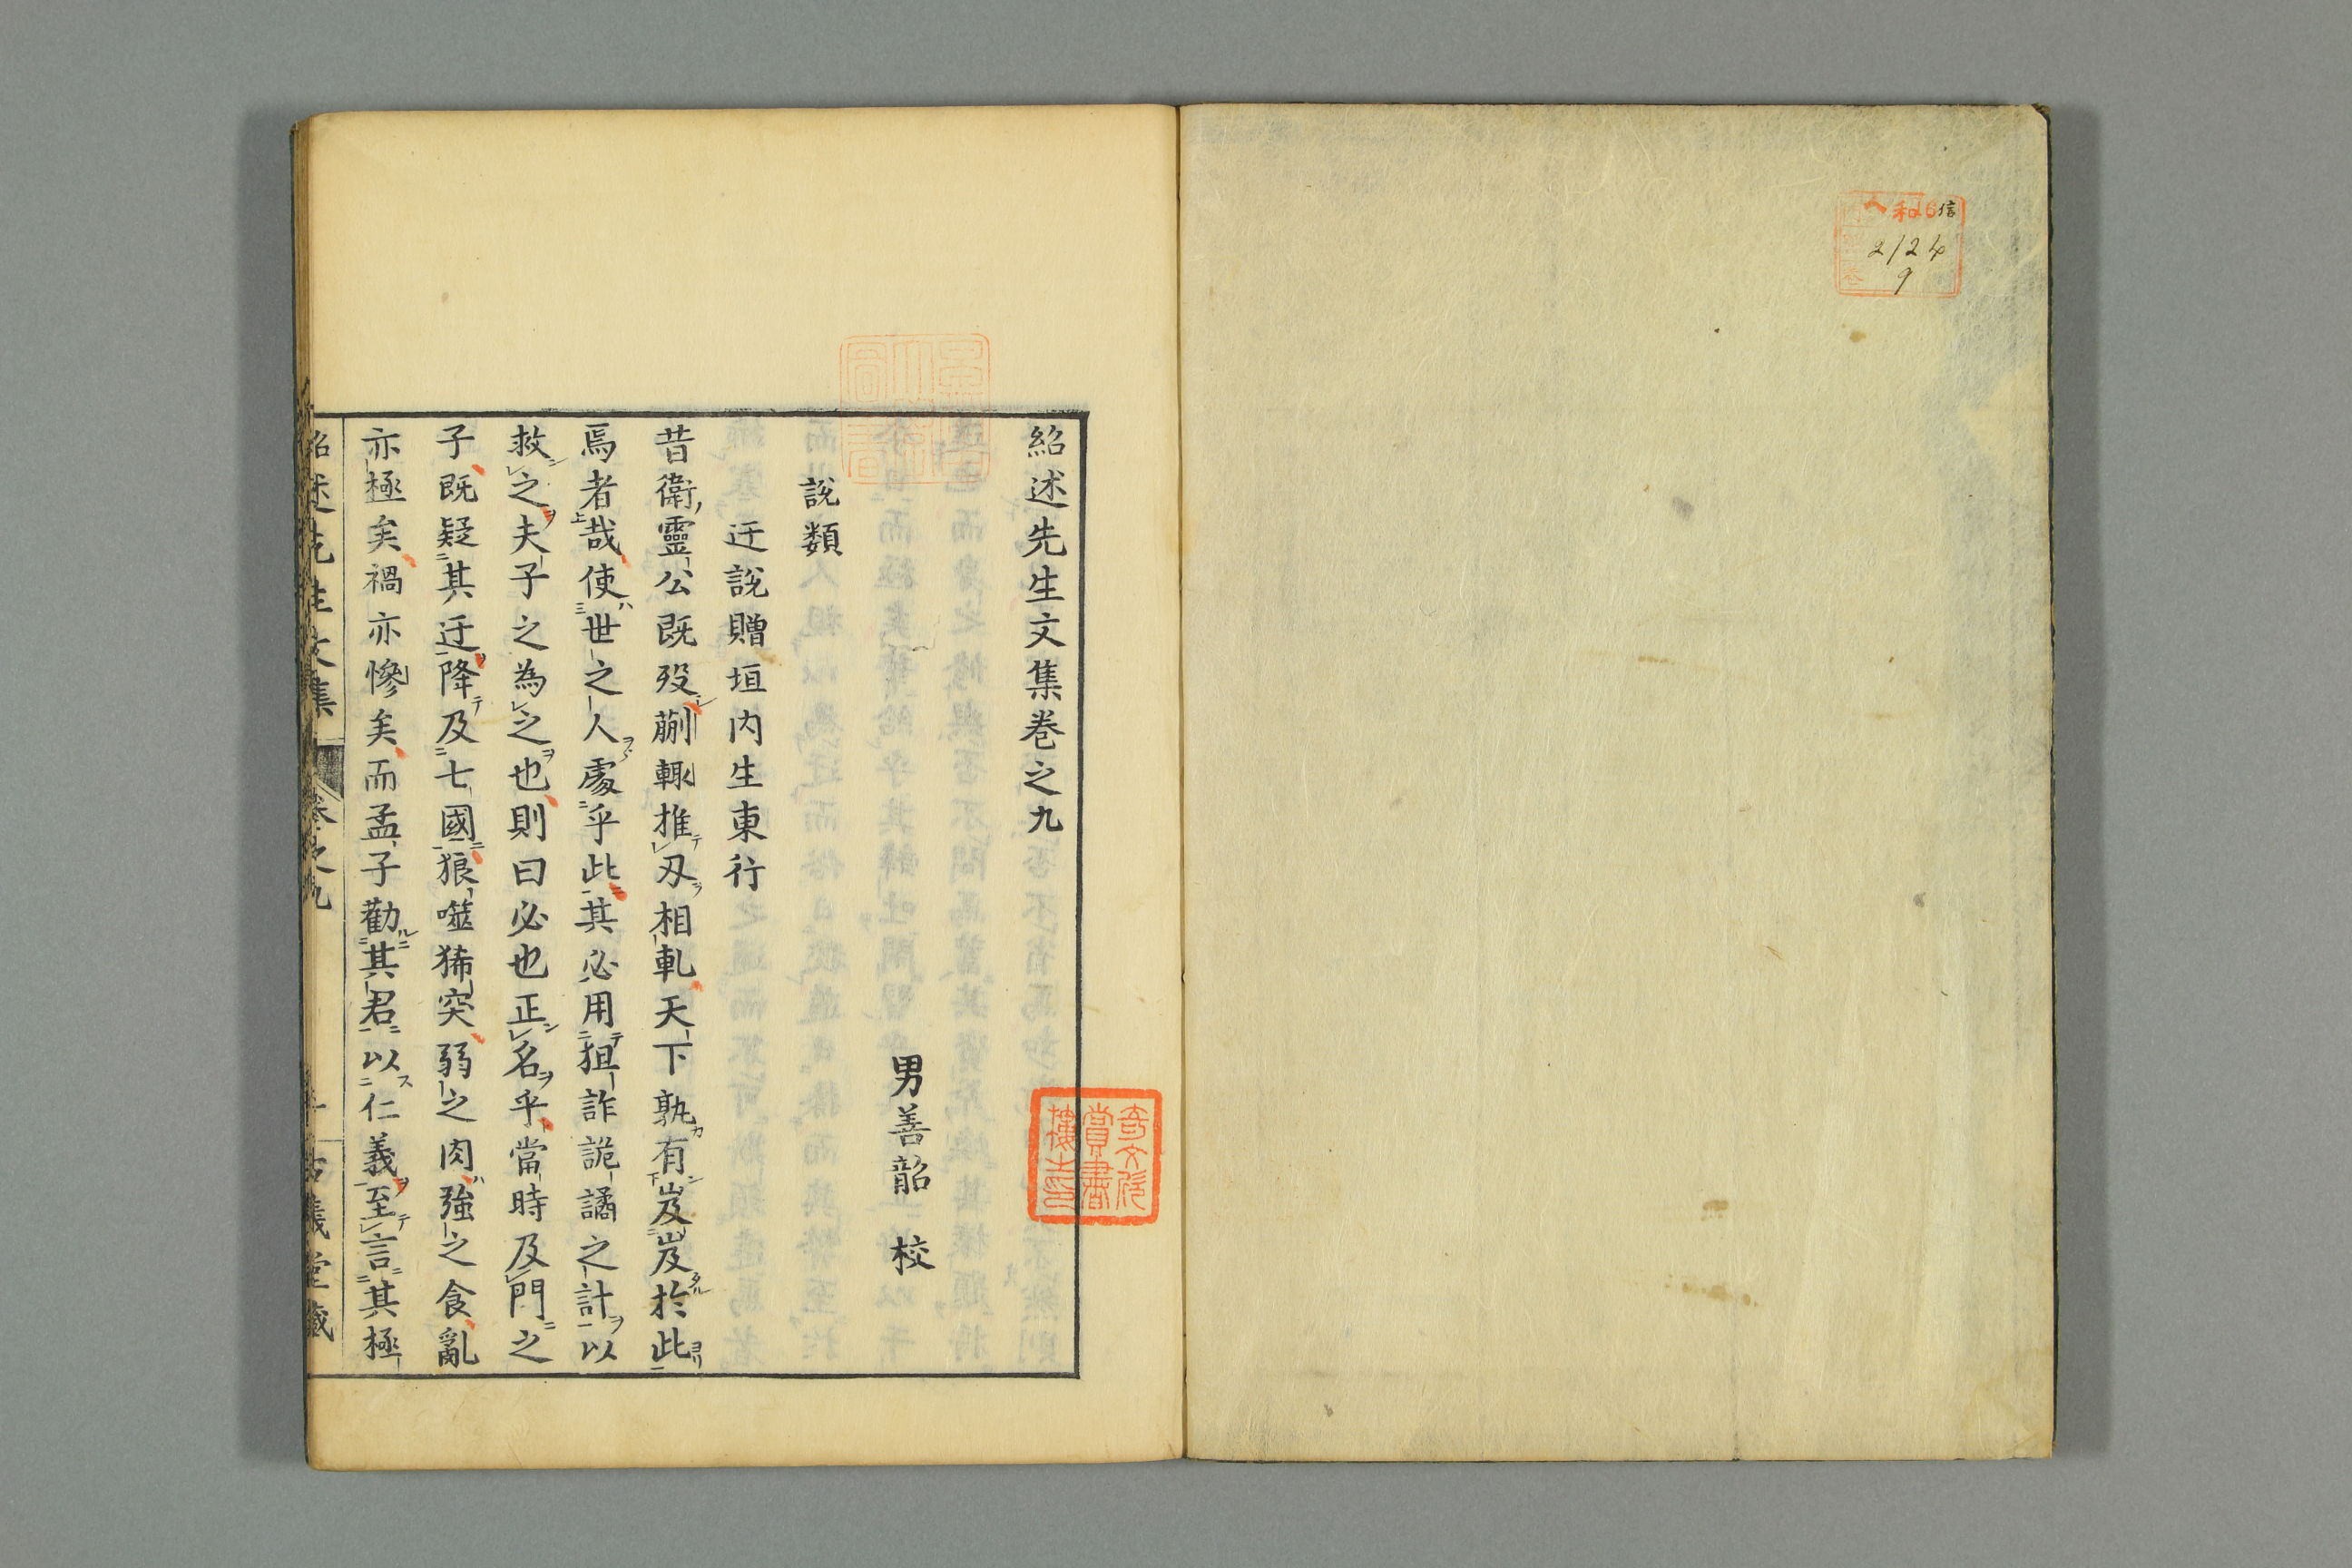 和6信
2124
9
紹述先生文集巻之九
男善韶 校
說類
迂說贈垣内生東行
昔衛靈公既歿蒯輙推刃相軋天下孰有岌岌於此
焉者哉使世之人處乎此其必用狙詐詭譎之計以
救之夫子之為之也則曰必也正名乎當時及門之
子既疑其迂降及七國狼噬狶突弱之肉強之食亂
亦極矣禍亦慘矣而孟子勸其君以仁義至言其極
紹述先生文集 巻之九 古義堂藏
奇文欣
賞書
樓之印